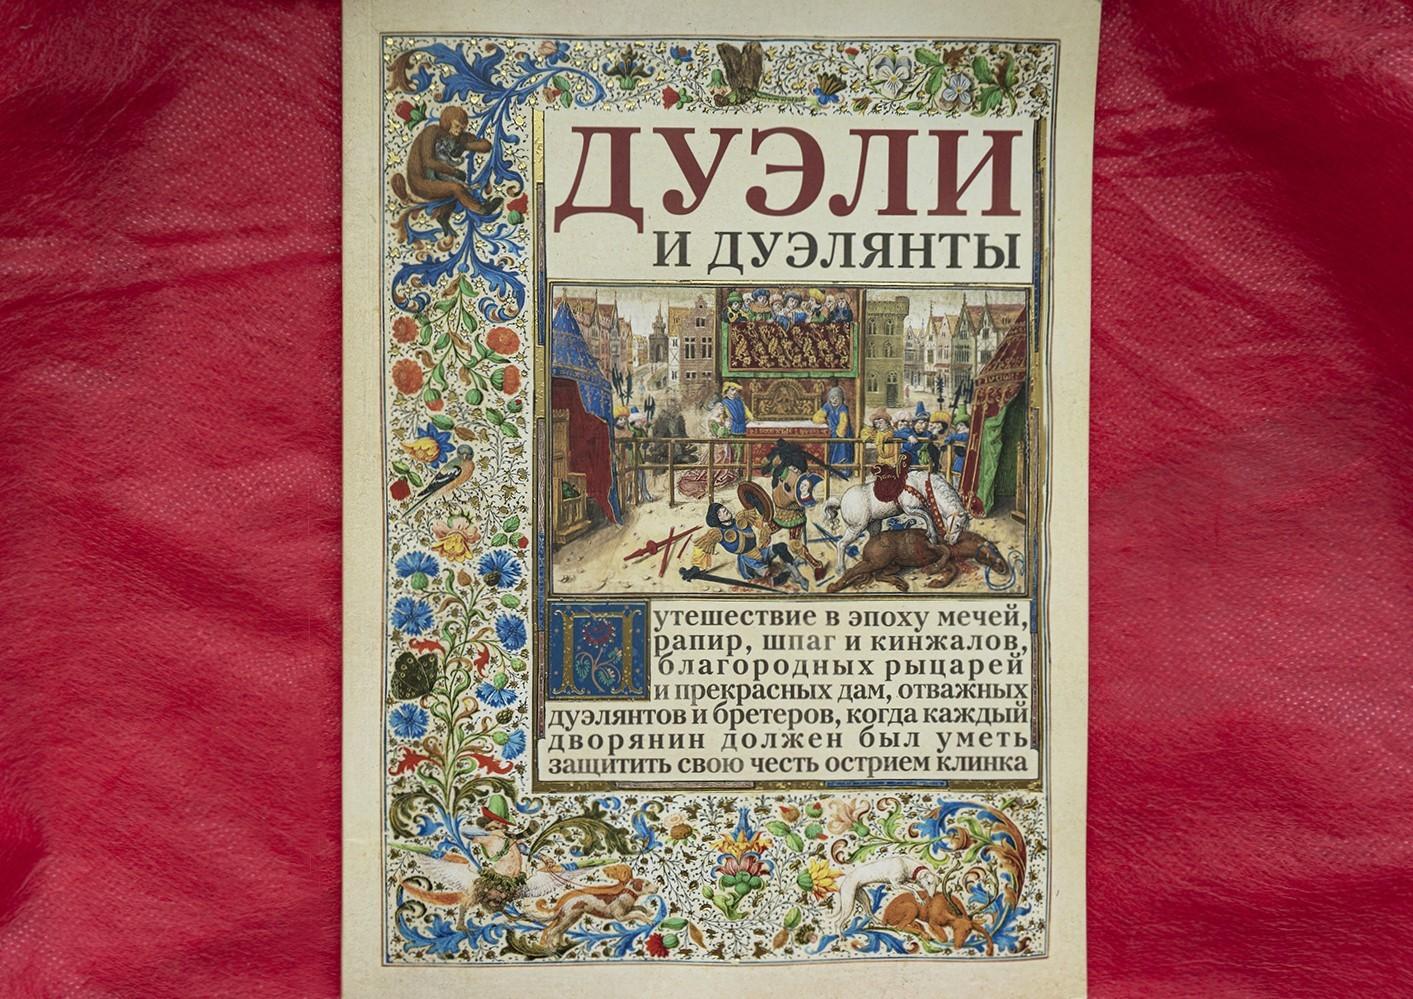 ДУЭЛИ
И ДУЭЛЯНТЫ
Путешествие в эпоху мечей,
рапир, шпаг и кинжалов,
благородных рыцарей
и прекрасных дам, отважных
дуэлянтов и бретеров, когда каждый
дворянин должен был уметь
защитить свою честь острием клинка